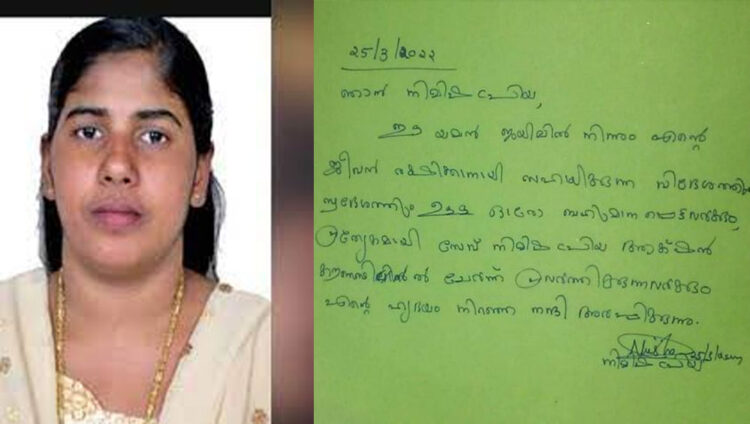 25/3/2022
ഞാൻ നിമിഷ പ്രിയ,
ഈ യമൻ ജയിലിൽ നിന്നും എന്റെ
ജീവൻ രക്ഷിക്കാനായി സഹായിക്കുന്ന വിദേശത്തും
സ്വദേശത്തും ഉള്ള ഓരോ ബഹുമാന പ്പെട്ടവർക്കും,
പ്രത്യേകമായി സേവ് നിമിഷ പ്രിയ ആക്ഷൻ
കൗൺസിലിൽ ചേർന്ന് പ്രവർത്തിക്കുന്നവർക്കും
എന്റെ ഹൃദയം നിറഞ്ഞ നന്ദി അർപ്പിക്കുന്നു.
നിമിഷ പ്രിയ